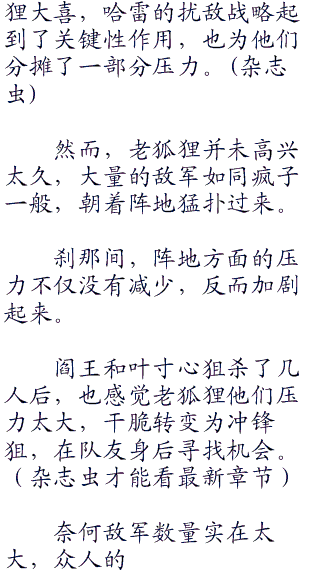 狸大喜，哈雷的扰敌战略起
到了关键性作用，也为他们
分摊了一部分压力。(杂志
虫)
然而，老狐狸并未高兴
太久，大量的敌军如同疯子
一般，朝着阵地猛扑过来。
刹那间，阵地方面的压
力不仅没有减少，反而加剧
起来。
阎王和叶寸心狙杀了几
人后，也感觉老狐狸他们压
力太大，干脆转变为冲锋
狙，在队友身后寻找机会。
（杂志虫才能看最新章节）
奈何敌军数量实在太
大，众人的